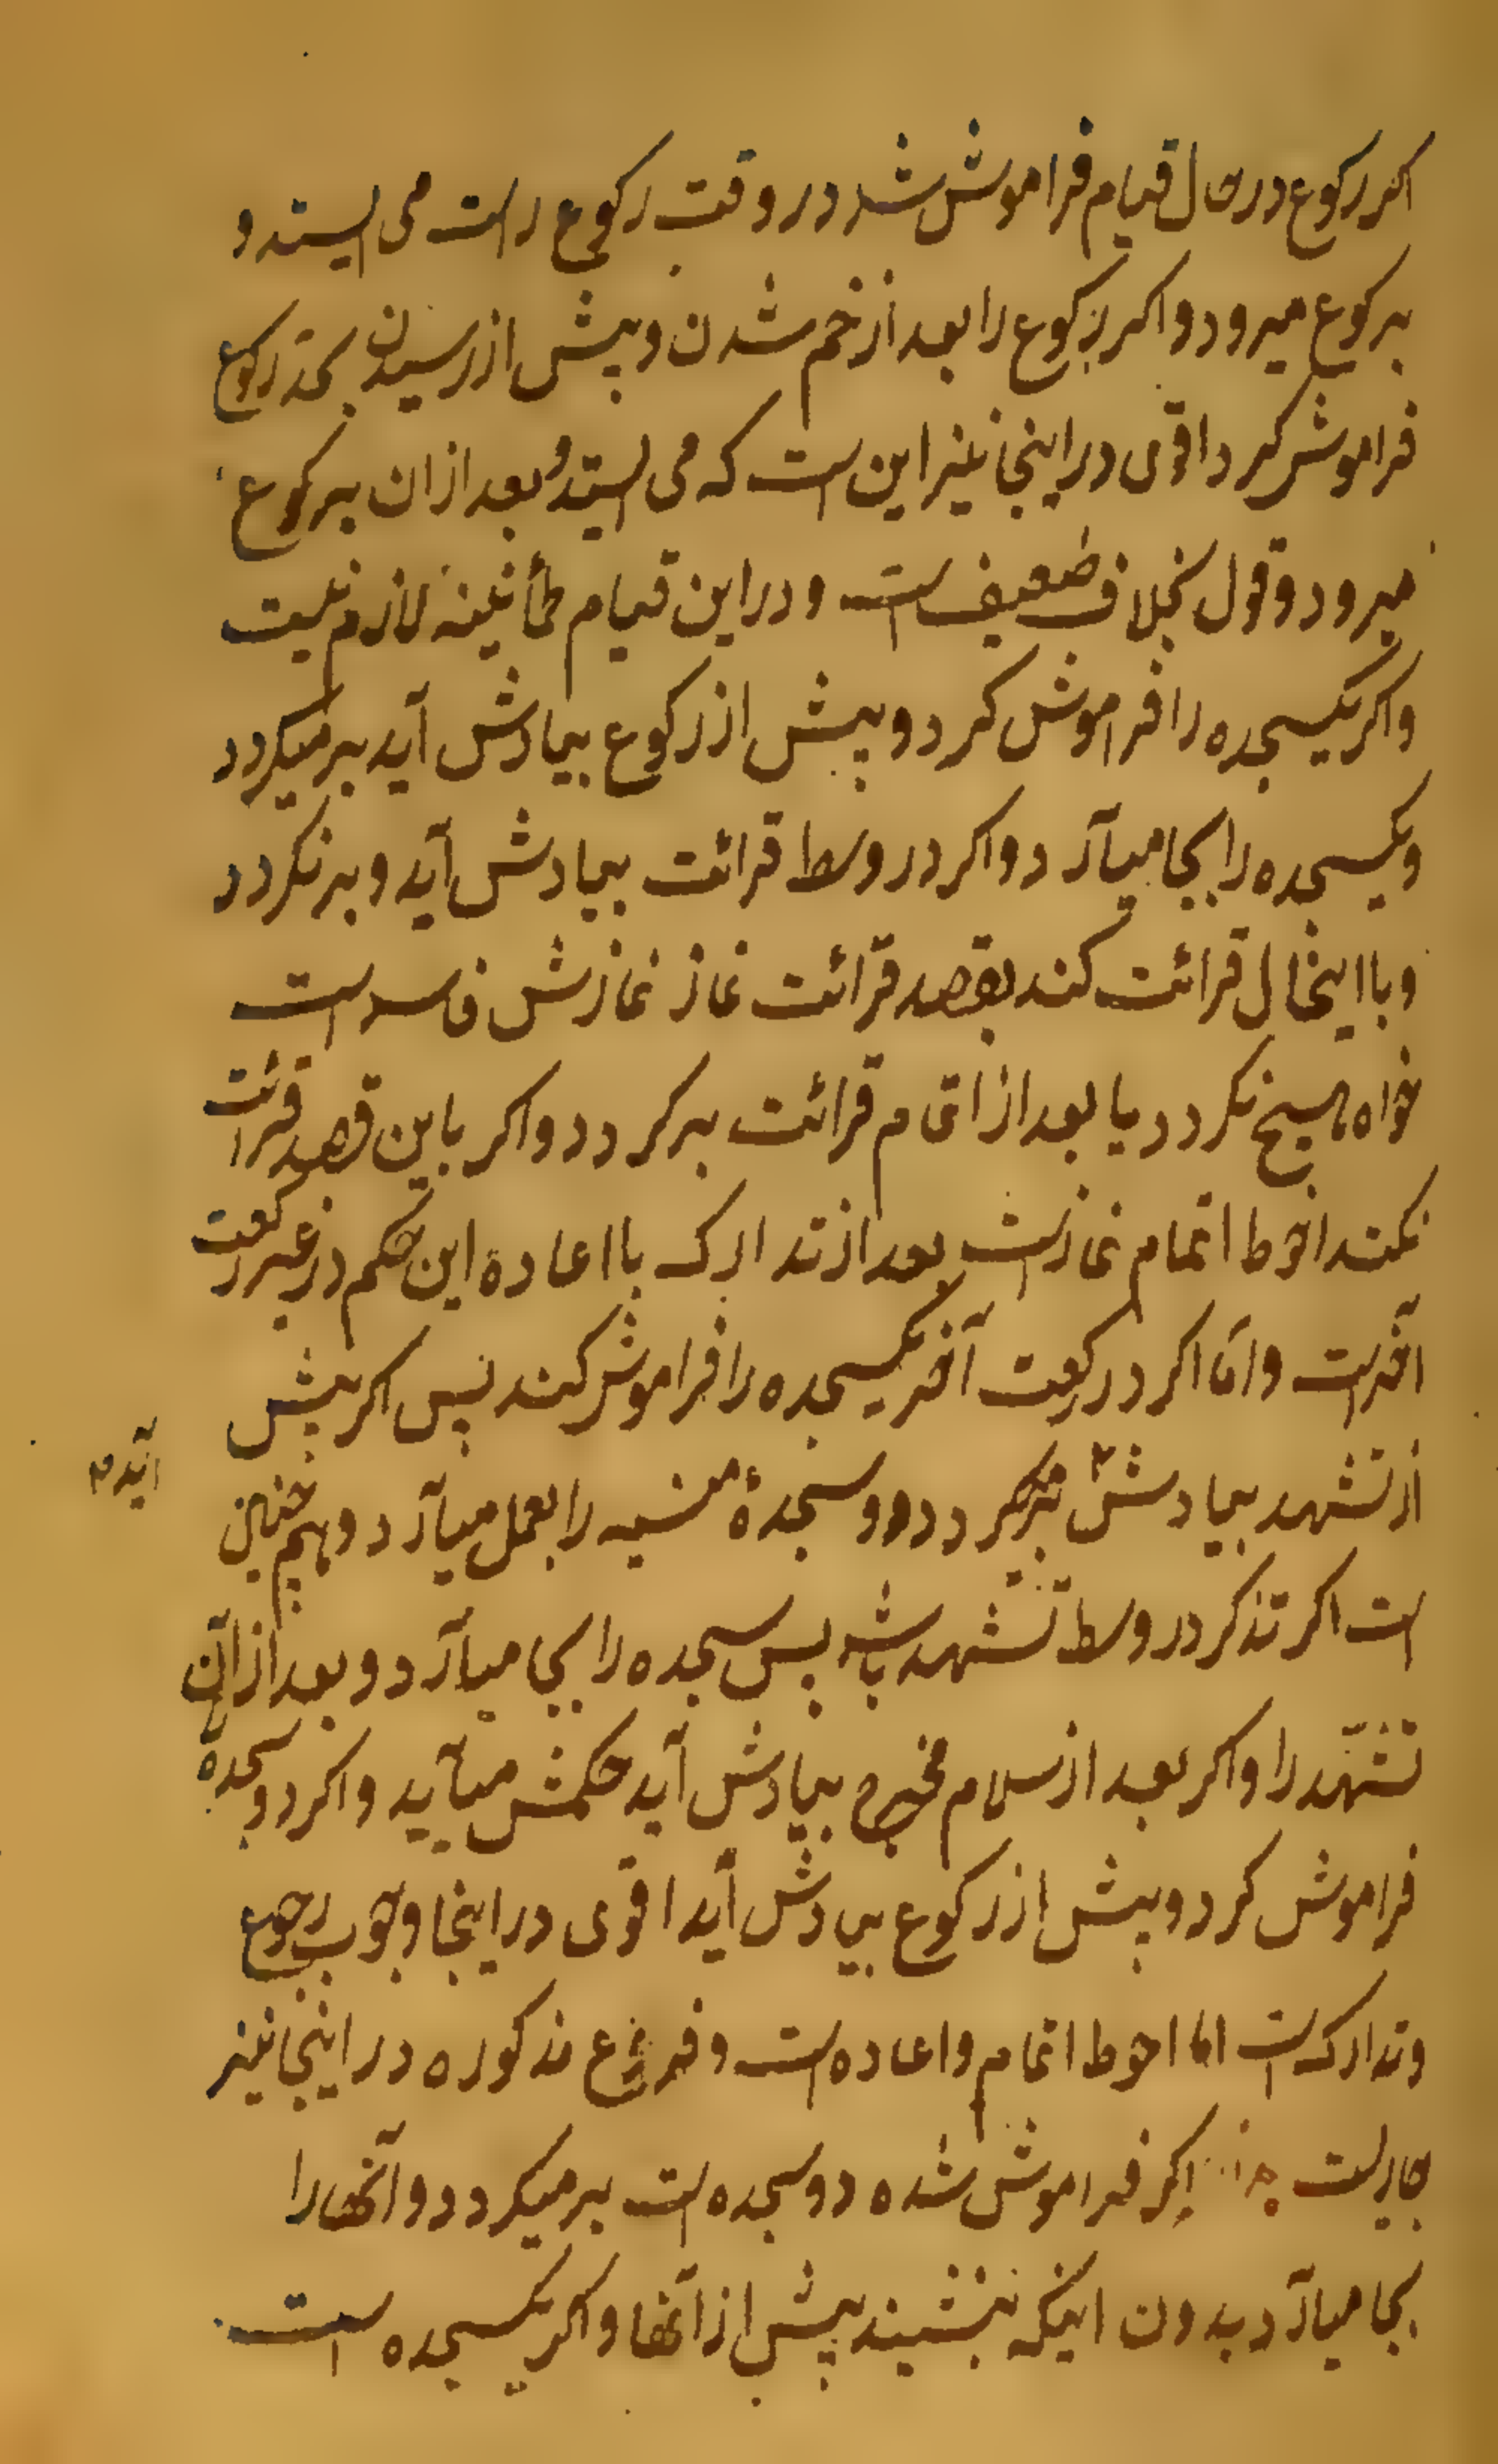 اکر رکوع در حال قیام فراموش شد در وقت رکوع راست می ایستد و
برکوع میرود و اکر رکوع را بعد از خم شدن و پیش از رسیدن بحد رکوع
فراموش کرد اقوی در اینجا نیز این است که می ایستد و بعد از ان برکوع
میرود و قول بخلاف ضعیف است و در این قیام طمأنینه لازم نیست
و اکر یکسجده را فراموش کرد و پیش از رکوع بیادش آید برمیکردد
و یکسجده را بجا میآرد و اکر در وسط قرائت بیادش آید و برنکردد
و با اینحال قرائت کند بقصد قرائت نماز نمازش فاسد است
خواه هیچ نکردد یا بعد از اتمام قرائت برکردد و اکر باین قصد قرائت
نکند احوط اتمام نماز است بعد از تدارک با اعاده این حکم در غیر رکعت
آخر است و امّا اکر در رکعت آخر یکسجده را فراموش کند پس اکر پیش
از تشهد بیادش برمیکردد و سجدهٔ منسیه را بعمل میآرد و هم چنین
آید
است اکر تذکر در وسط تشهد باشد پس سجده را بجا میآرد و بعد از آن
تشهّد را و اکر بعد از سلام مخرج بیادش آید حکمش میآید و اکر دو سجده
فراموش کرد و پیش از رکوع بیادش آید اقوی در اینجا وجوب رجوع
و تدارک است امّا احوط اتمام و اعاده است و فروع مذکوره در اینجا نیز
جاریست اکر فراموش شده دو سجده است برمیکردد و آنها را
بجا میآرد بدون اینکه بنشیند پیش از آنها و اکر یکسجده است